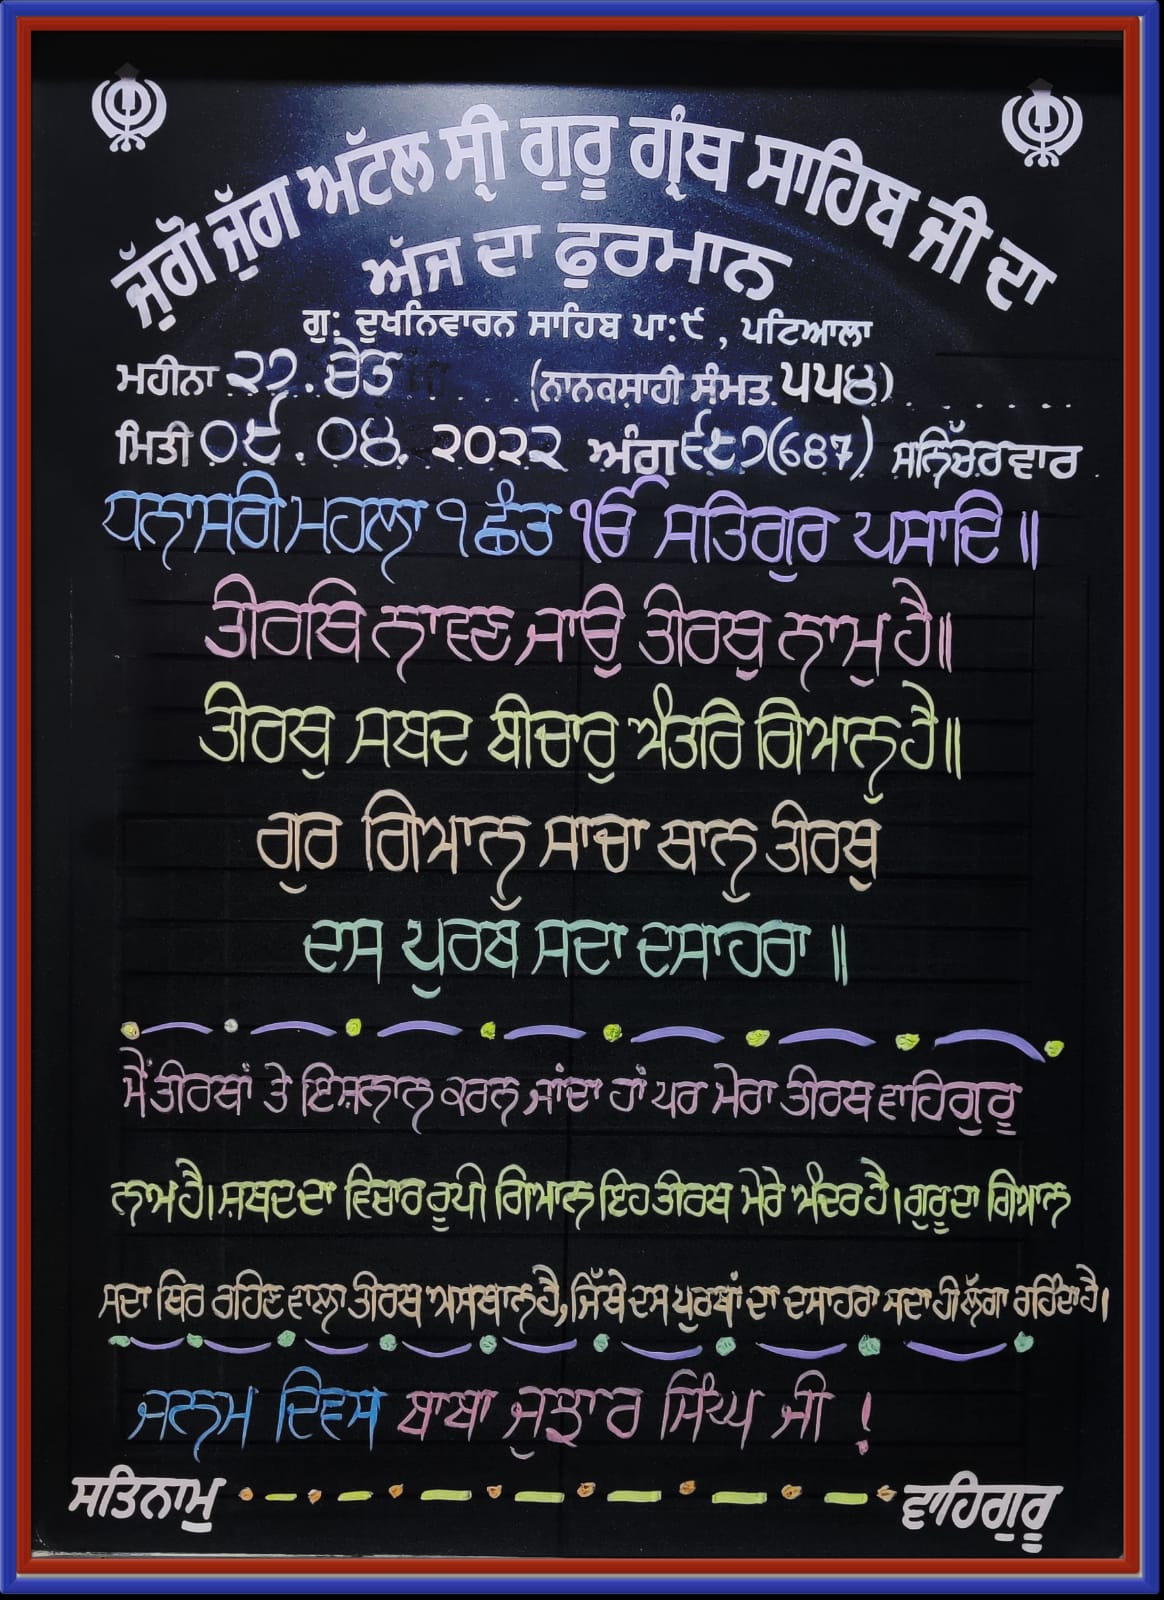 ਜੁੱਗੋ ਜੁੱਗ ਅੱਟਲ ਸ੍ਰੀ ਗੁਰੂ ਗ੍ਰੰਥ ਸਾਹਿਬ ਜੀ ਦਾ
ਅੱਜ ਦਾ ਫੁਰਮਾਨ
ਗੁ: ਦੂਖਨਿਵਾਰਨ ਸਾਹਿਬ ਪਾ:੯ , ਪਟਿਆਲਾ
ਮਹੀਨਾ ੨੭. ਚੈਤ (ਨਾਨਕਸ਼ਾਹੀ ਸੰਮਤ ੫੫੪)
ਮਿਤੀ ੦੯. ੦੪. ੨੦੨੨ ਅੰਗ ੬੮੭ (687) ਸਨਿੱਚਰਵਾਰ
ਧਨਾਸਰੀ ਮਹਲਾ ੧ ਛੰਤ ੴ ਸਤਿਗੁਰ ਪਸਾਦਿ ॥
ਤੀਰਥਿ ਨਾਵਣ ਜਾਉ ਤੀਰਥੁ ਨਾਮੁ ਹੈ॥
ਤੀਰਥੁ ਸਬਦ ਬੀਚਾਰੁ ਅੰਤਰਿ ਗਿਆਨੁ ਹੈ॥
ਗੁਰ ਗਿਆਨੁ ਸਾਚਾ ਥਾਨੁ ਤੀਰਥੁ
ਦਸ ਪੁਰਬ ਸਦਾ ਦਸਾਹਰਾ ॥
ਮੈਂ ਤੀਰਥਾਂ ਤੇ ਇਸ਼ਨਾਨ ਕਰਨ ਜਾਂਦਾ ਹਾਂ ਪਰ ਮੇਰਾ ਤੀਰਥ ਵਾਹਿਗੁਰੂ
ਨਾਮ ਹੈ। ਸ਼ਬਦ ਦਾ ਵਿਚਾਰ ਰੂਪੀ ਗਿਆਨ ਇਹ ਤੀਰਥ ਮੇਰੇ ਅੰਦਰ ਹੈ। ਗੁਰੂ ਦਾ ਗਿਆਨ
ਸਦਾ ਥਿਰ ਰਹਿਣ ਵਾਲਾ ਤੀਰਥ ਅਸਥਾਨ ਹੈ, ਜਿੱਥੇ ਦਸ ਪੁਰਬਾਂ ਦਾ ਦਸਾਹਰਾ ਸਦਾ ਹੀ ਲੱਗਾ ਰਹਿੰਦਾ ਹੈ।
ਜਨਮ ਦਿਵਸ ਬਾਬਾ ਜੁਝਾਰ ਸਿੰਘ ਜੀ !
ਸਤਿਨਾਮੁ ਵਾਹਿਗੁਰੂ